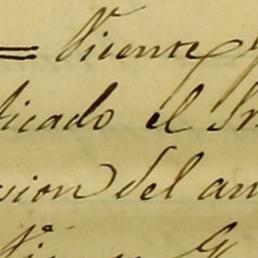 = Vicente
icado el Sr
sion del an